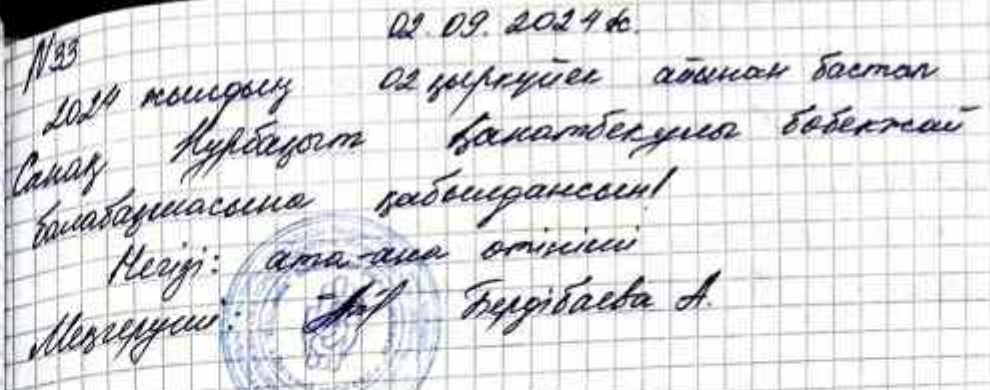 №33
02.09.2024 ж.
2024 жылдың 02 қыркүйек айынан бастап
Санақ Нурбақыт Қанатбекұлы бөбекжай
балабақшасына қабылдансын!
Негізі: ата-ана өтініші
Меңгеруші: Бердібаева А.